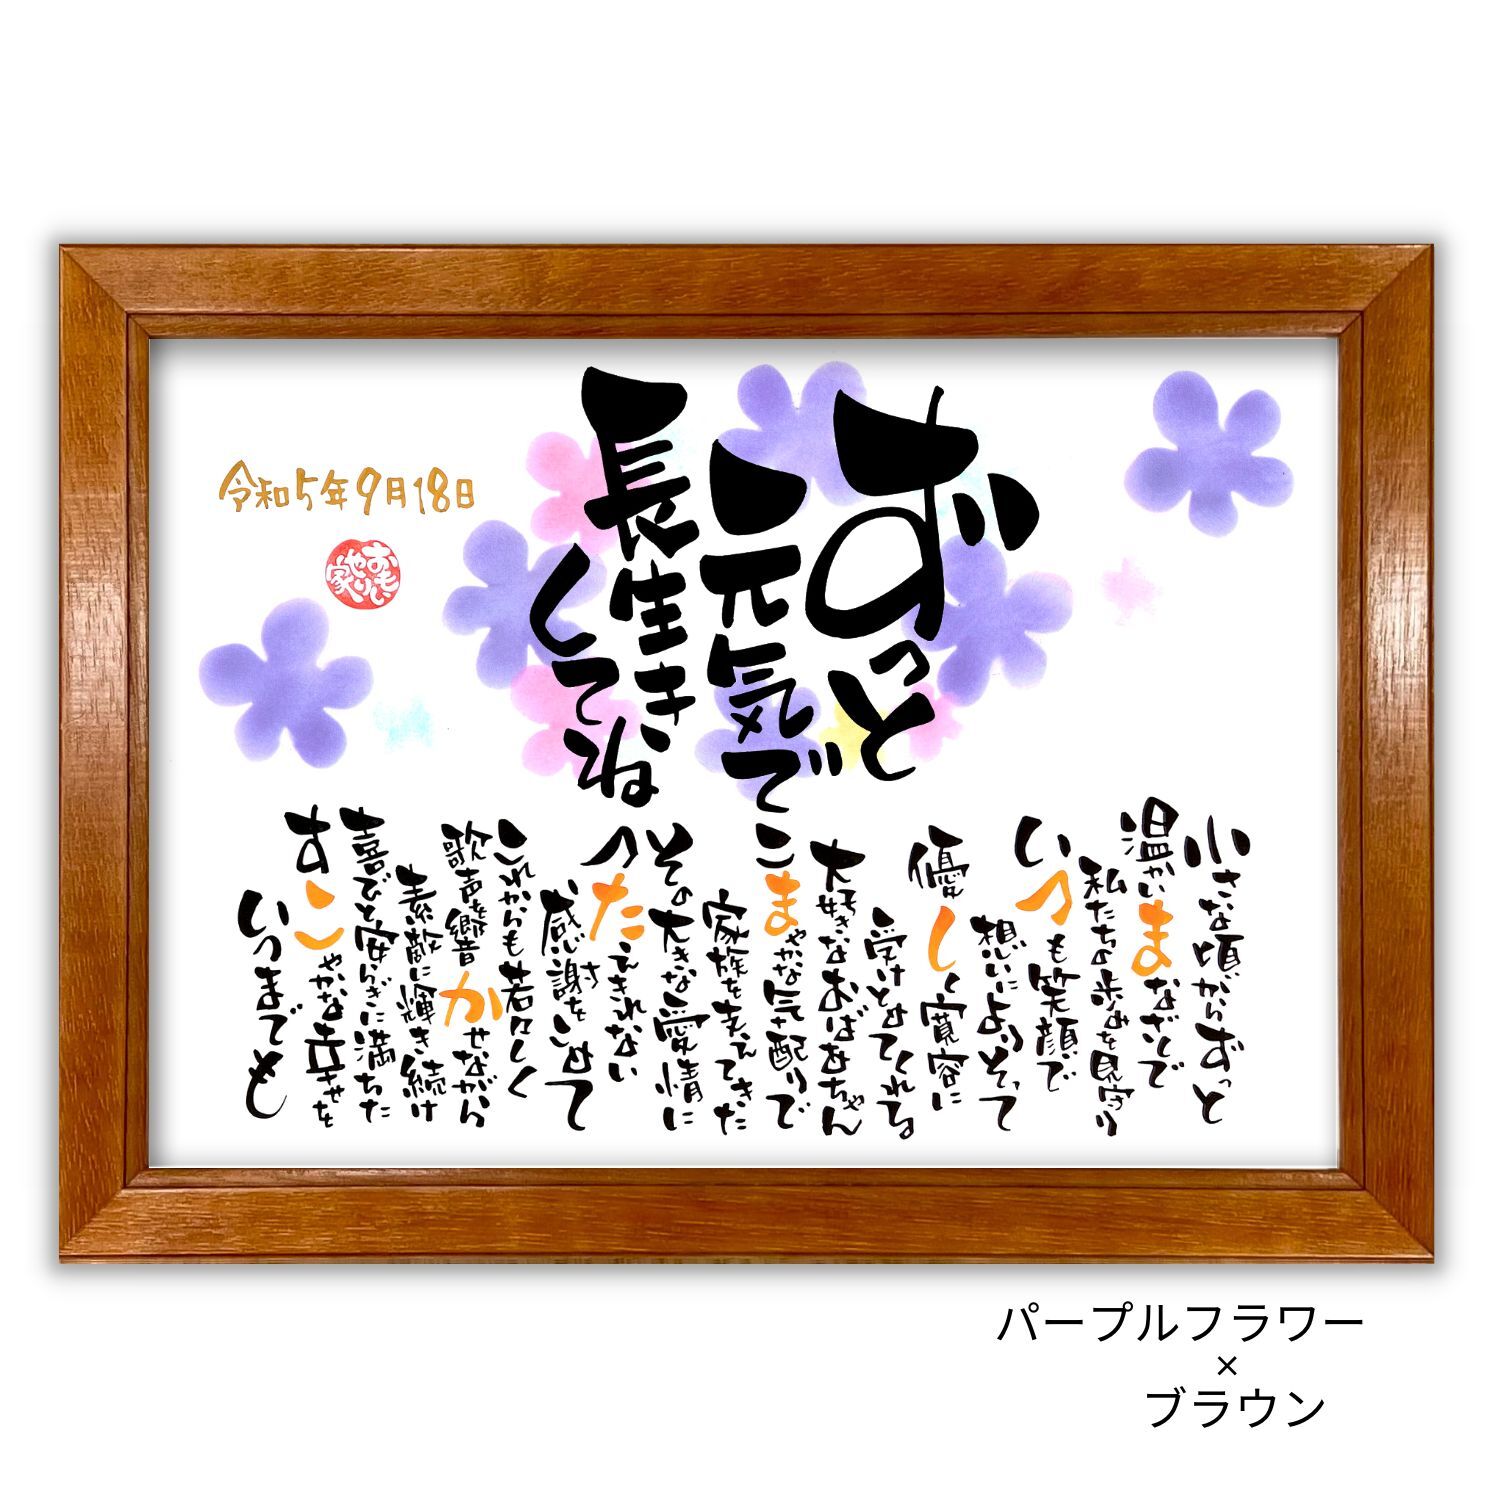 ずっと
元気で
長生き
してね
令和5年9月18日
おもいやり家
小さな頃からずっと
温かいまなざしで
私たちの歩みを見守り
いつも笑顔で
想いによりそって
優しく寛容に
受けとめてくれる
大好きなおばあちゃん
こまやかな気配りで
家族を支えてきた
その大きな愛情に
つたえきれない
感謝をこめて
これからも若々しく
歌声を響かせながら
素敵に輝き続け
喜びと安らぎに満ちた
すこやかな幸せを
いつまでも
パープルフラワー
×
ブラウン